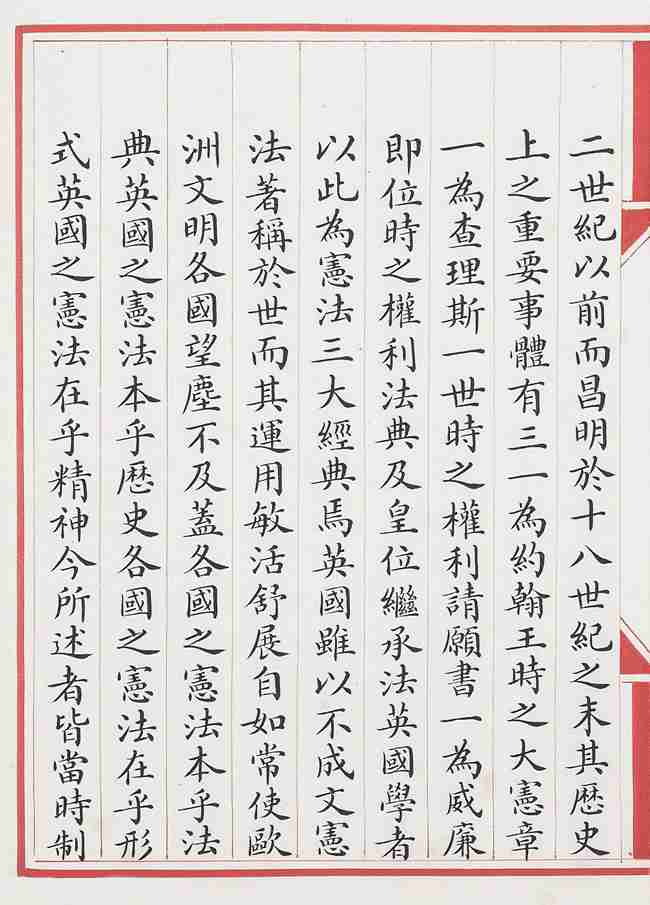 二世紀以前而昌明於十八世紀之末其歴史
上之重要事體有三一為約翰王時之大憲章
一為查理斯一世時之權利請願書一為威廉
即位時之權利法典及皇位繼承法英國學者
以此為憲法三大經典焉英國雖以不成文憲
法著稱於世而其運用敏活舒展自如常使歐
洲文明各國望塵不及蓋各國之憲法本乎法
典英國之憲法本乎歴史各國之憲法在乎形
式英國之憲法在乎精神今所述者皆當時制